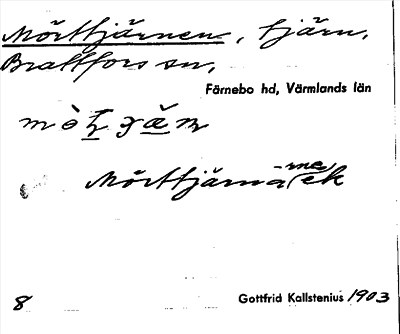 Mörttjärnen, tjärn,
Brattfors sn,
Färnebo hd, Värmlands län
Mörttjärna
8
Gottfrid Kallstenius 1903